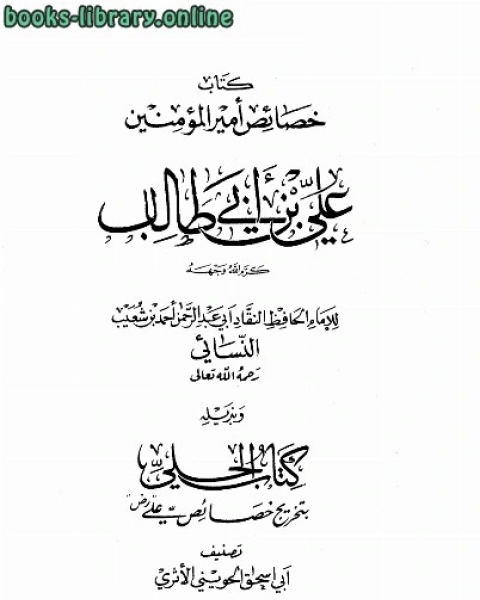 books-library.online
كتاب
خصائص أمير المؤمنين
علي بن أبي طالب
كرم الله وجهه
للإمام الحافظ النقاد أبي عبد الرحمن أحمد بن شعيب
النسائي
رحمه الله تعالى
وبذيله
كتاب الحلي
بتخريج خصائص علي "رض"
تصنيف
أبي إسحق الحويني الأثري